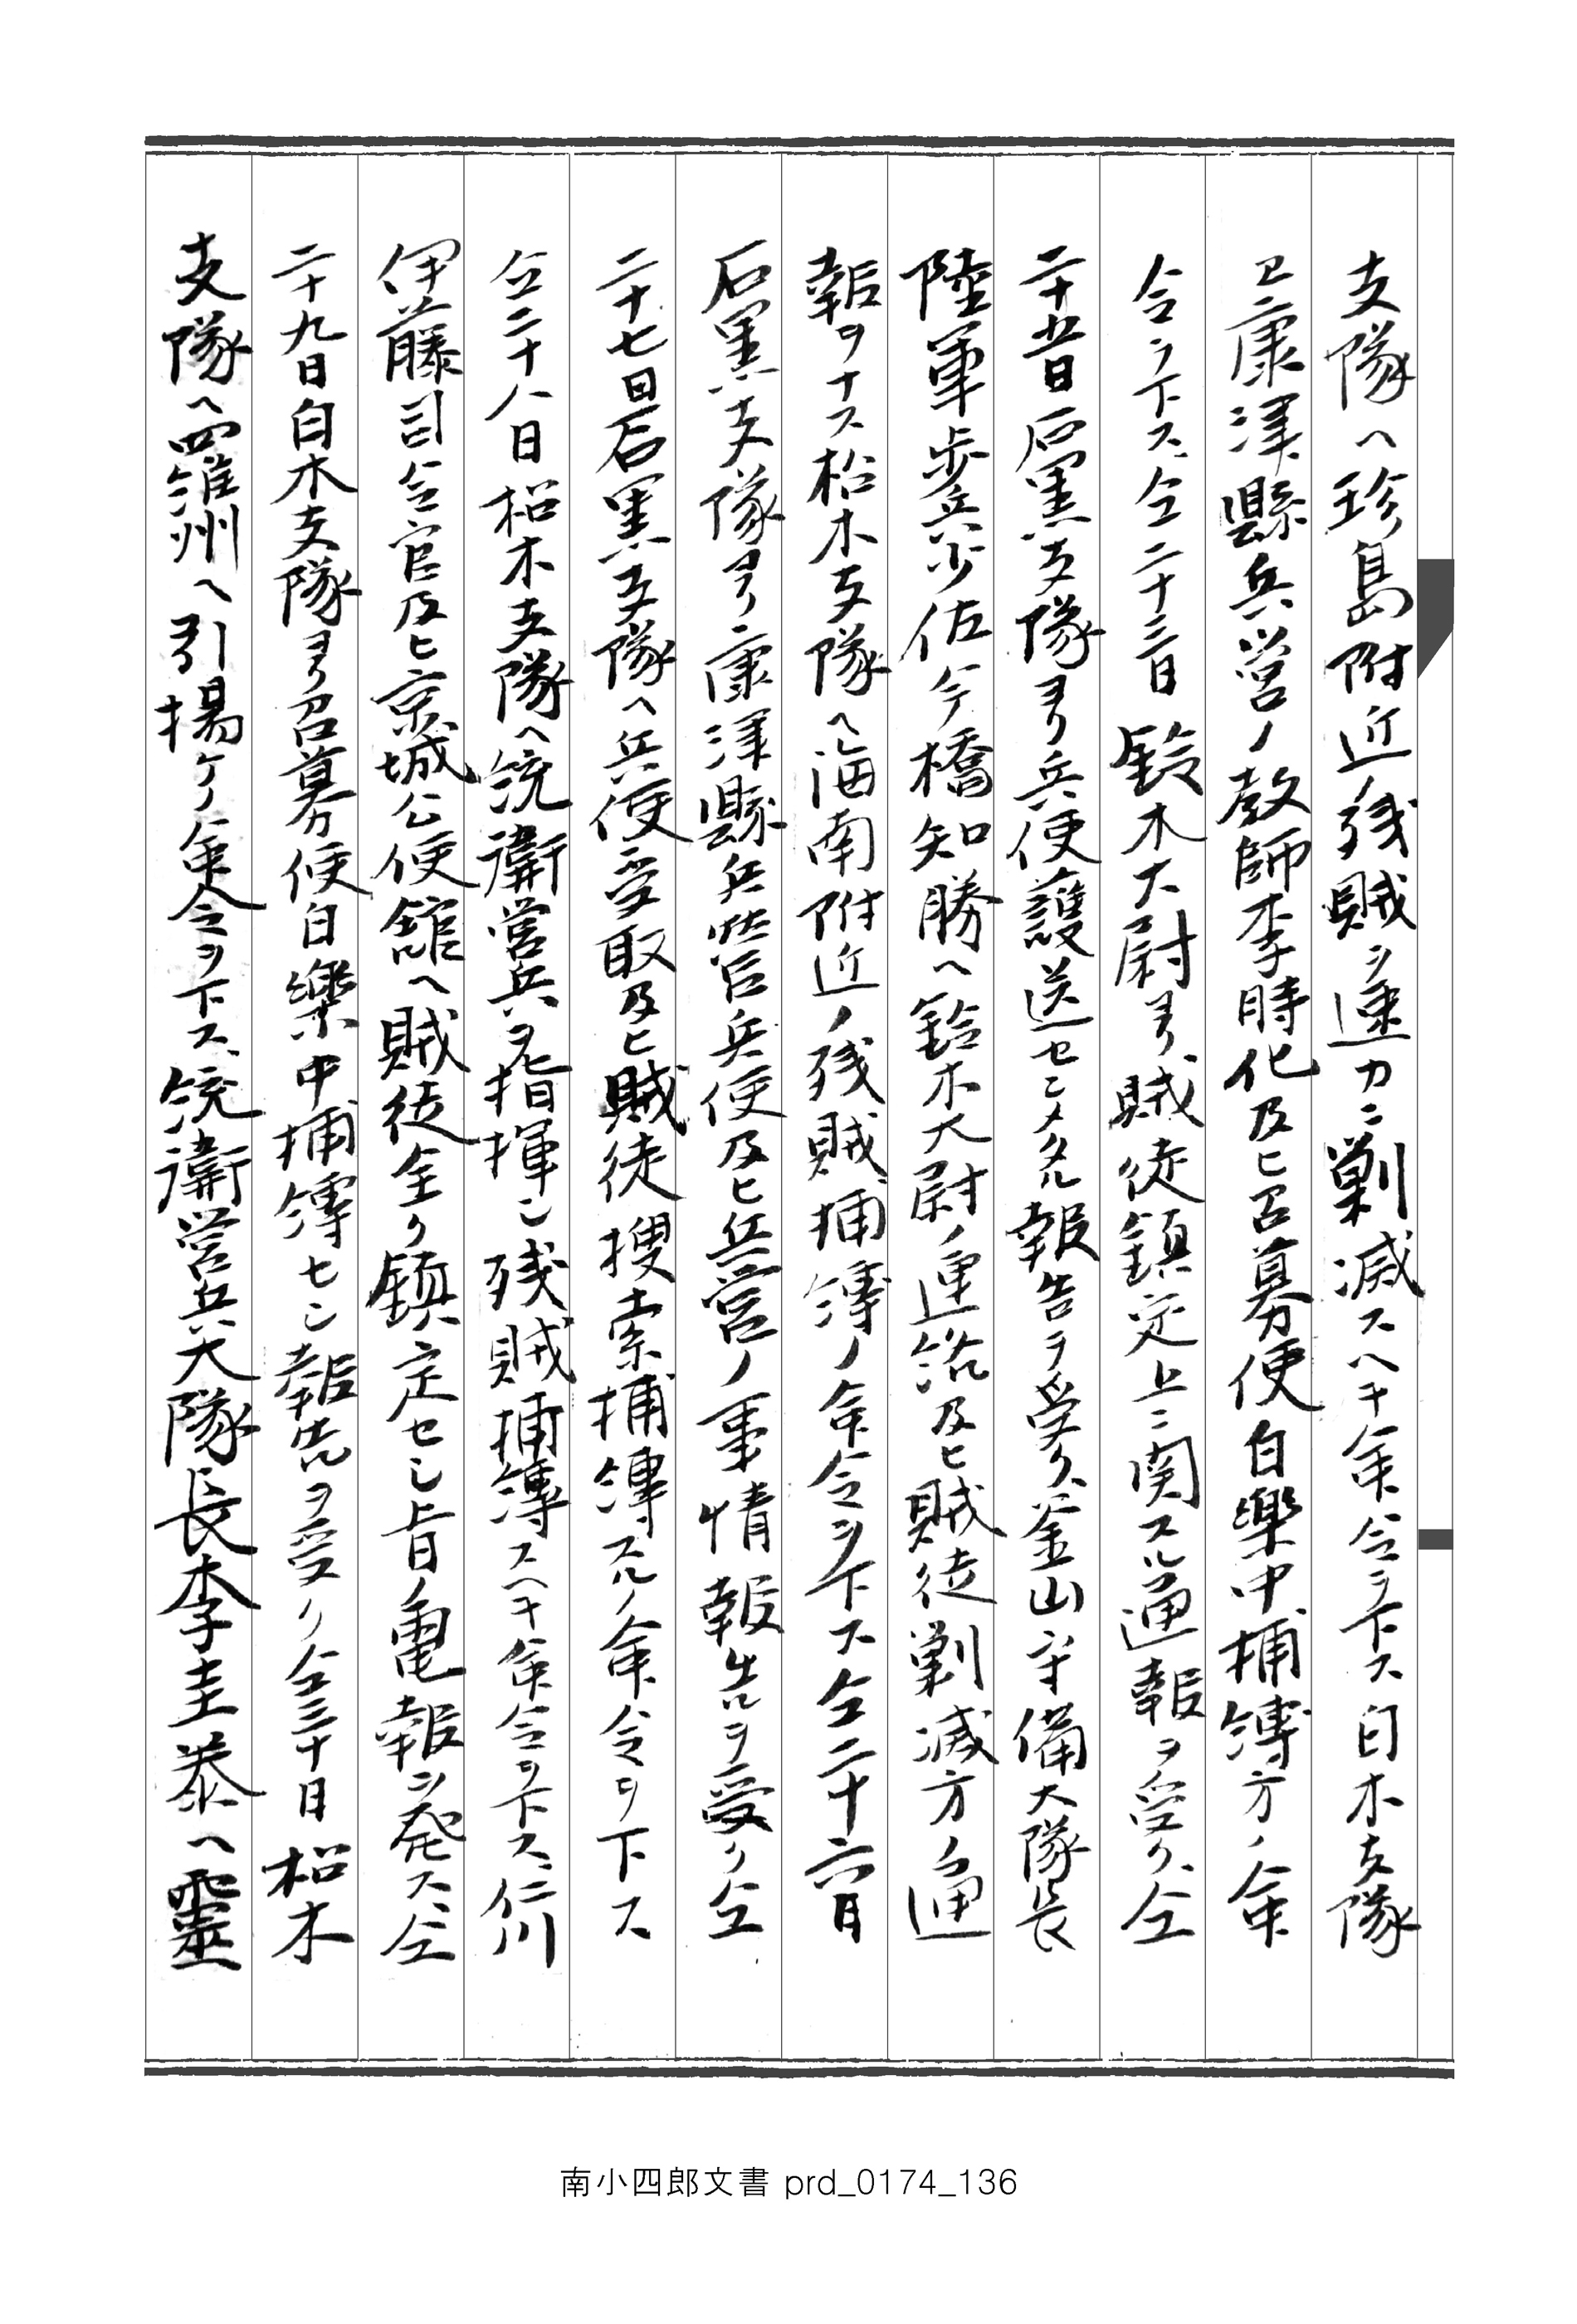 支隊ヘ珍島附近ノ残賊ヲ速カニ剿滅スヘキ命令ヲ下ス白木支隊
ヱ康津縣兵営ノ教師李時化及ヒ召募使白樂中捕縛方ノ命
令ヲ下ス、仝二十三日鈴木大尉ヨリ賊徒鎮定上ニ関スル通報ヲ受ク、仝
二十五日石黒支隊ヨリ兵使護送セシメタル報告ヲ受ク、釜山守備大隊長
陸軍歩兵少佐今橋知勝ヘ鈴木大尉ノ連絡及ヒ賊徒剿滅方ノ通
報ヲナス松木支隊ヘ海南附近ノ残賊捕縛ノ命令ヲ下ス仝二十六日
石黒支隊ヨリ康津縣兵営兵使及ヒ兵営ノ事情報告ヲ受ク仝
二十七日石黒支隊ヘ兵使受取及ヒ賊徒搜索捕縛スルノ命令ヲ下ス
仝二十八日松木支隊ヘ統衛営兵ヲ指揮シ残賊捕縛スヘキ命令ヲ下ス、仁川
伊藤司令官及ヒ京城公使舘ヘ賊徒全ク鎮定セシ旨ノ電報ヲ発ス、仝
二十九日白木支隊ヨリ召募使白樂中捕縛セシ報告ヲ受ク仝三十日松木
支隊ヘ羅州ヘ引揚ケノ命令ヲ下ス、統衛営兵大隊長李圭泰ヘ靈
南小四郎文書 prd_0174_136